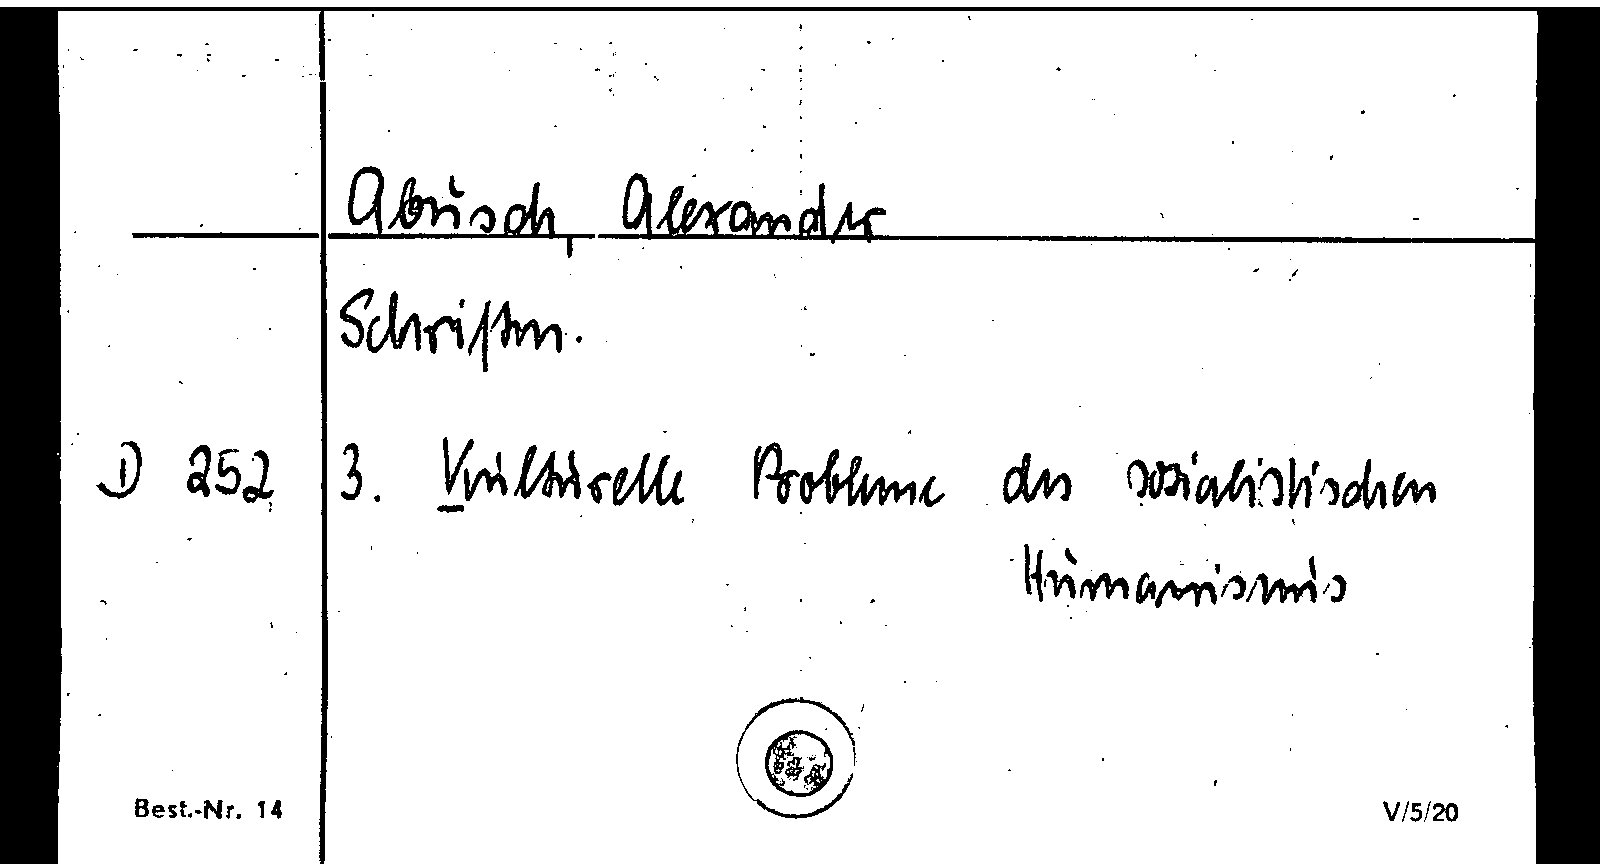 Abusch, Alexander
Schriften.
D 252 3. Kulturelle Probleme des sozialistischen
Humanismus
Best.-Nr. 14 V/5/20